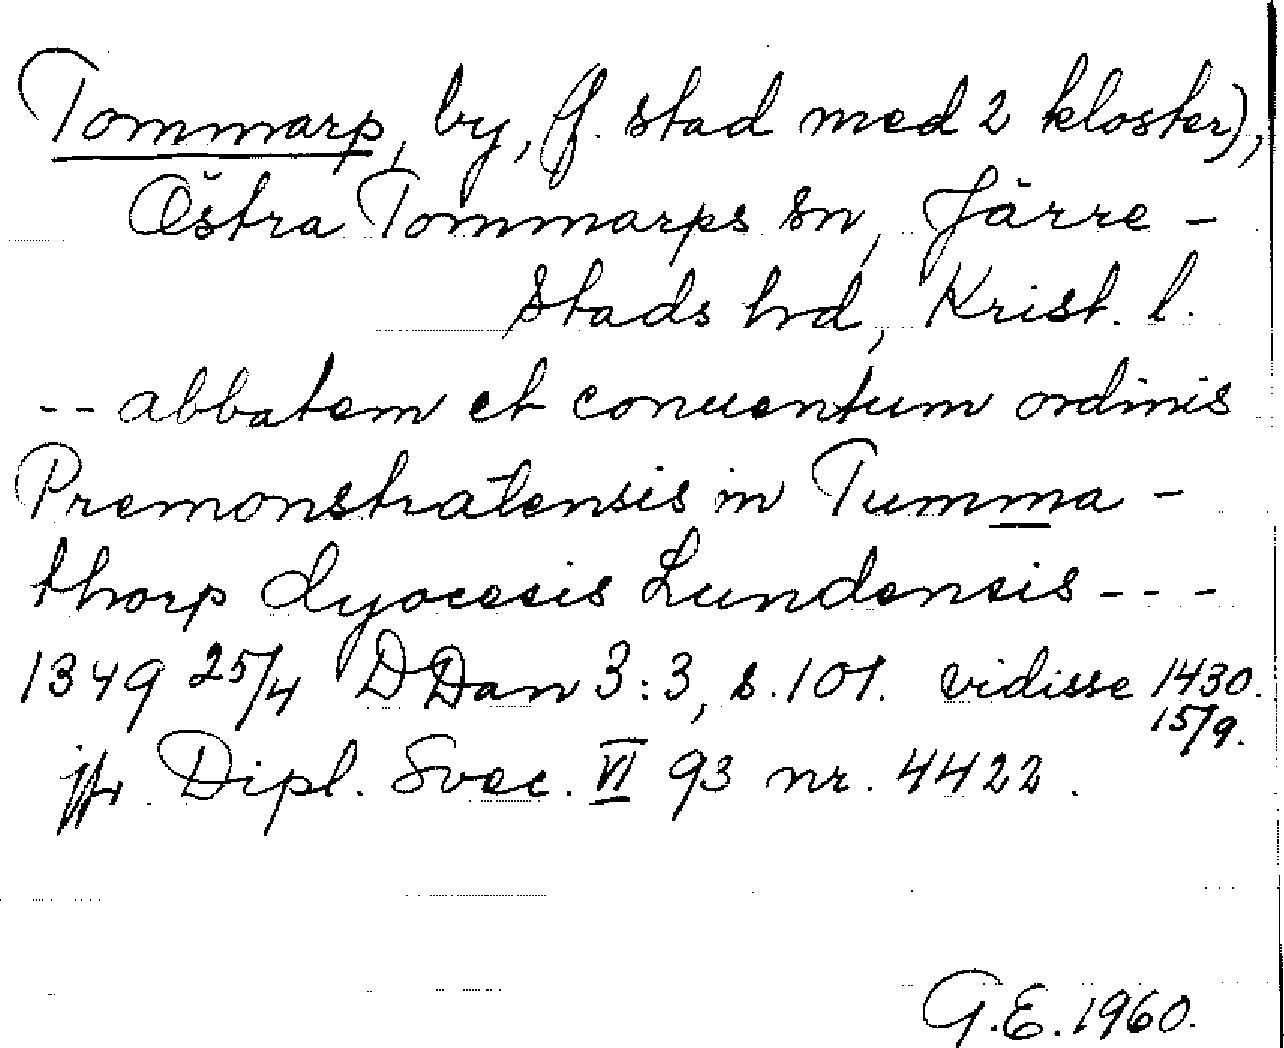 Tommarp, by, (f. stad med 2 kloster),
Östra Tommarps sn, Järre-
stads hd, Krist. l.
-- abbatem et conuentum ordinis
Premonstratensis in Tumma-
thorp dyocesis Lundensis ---
1349 25/4 DDan 3:3, s. 101. vidisse 1430.
15/9.
jfr Dipl. Svec. VI 93 nr. 4422.
G.E. 1960.